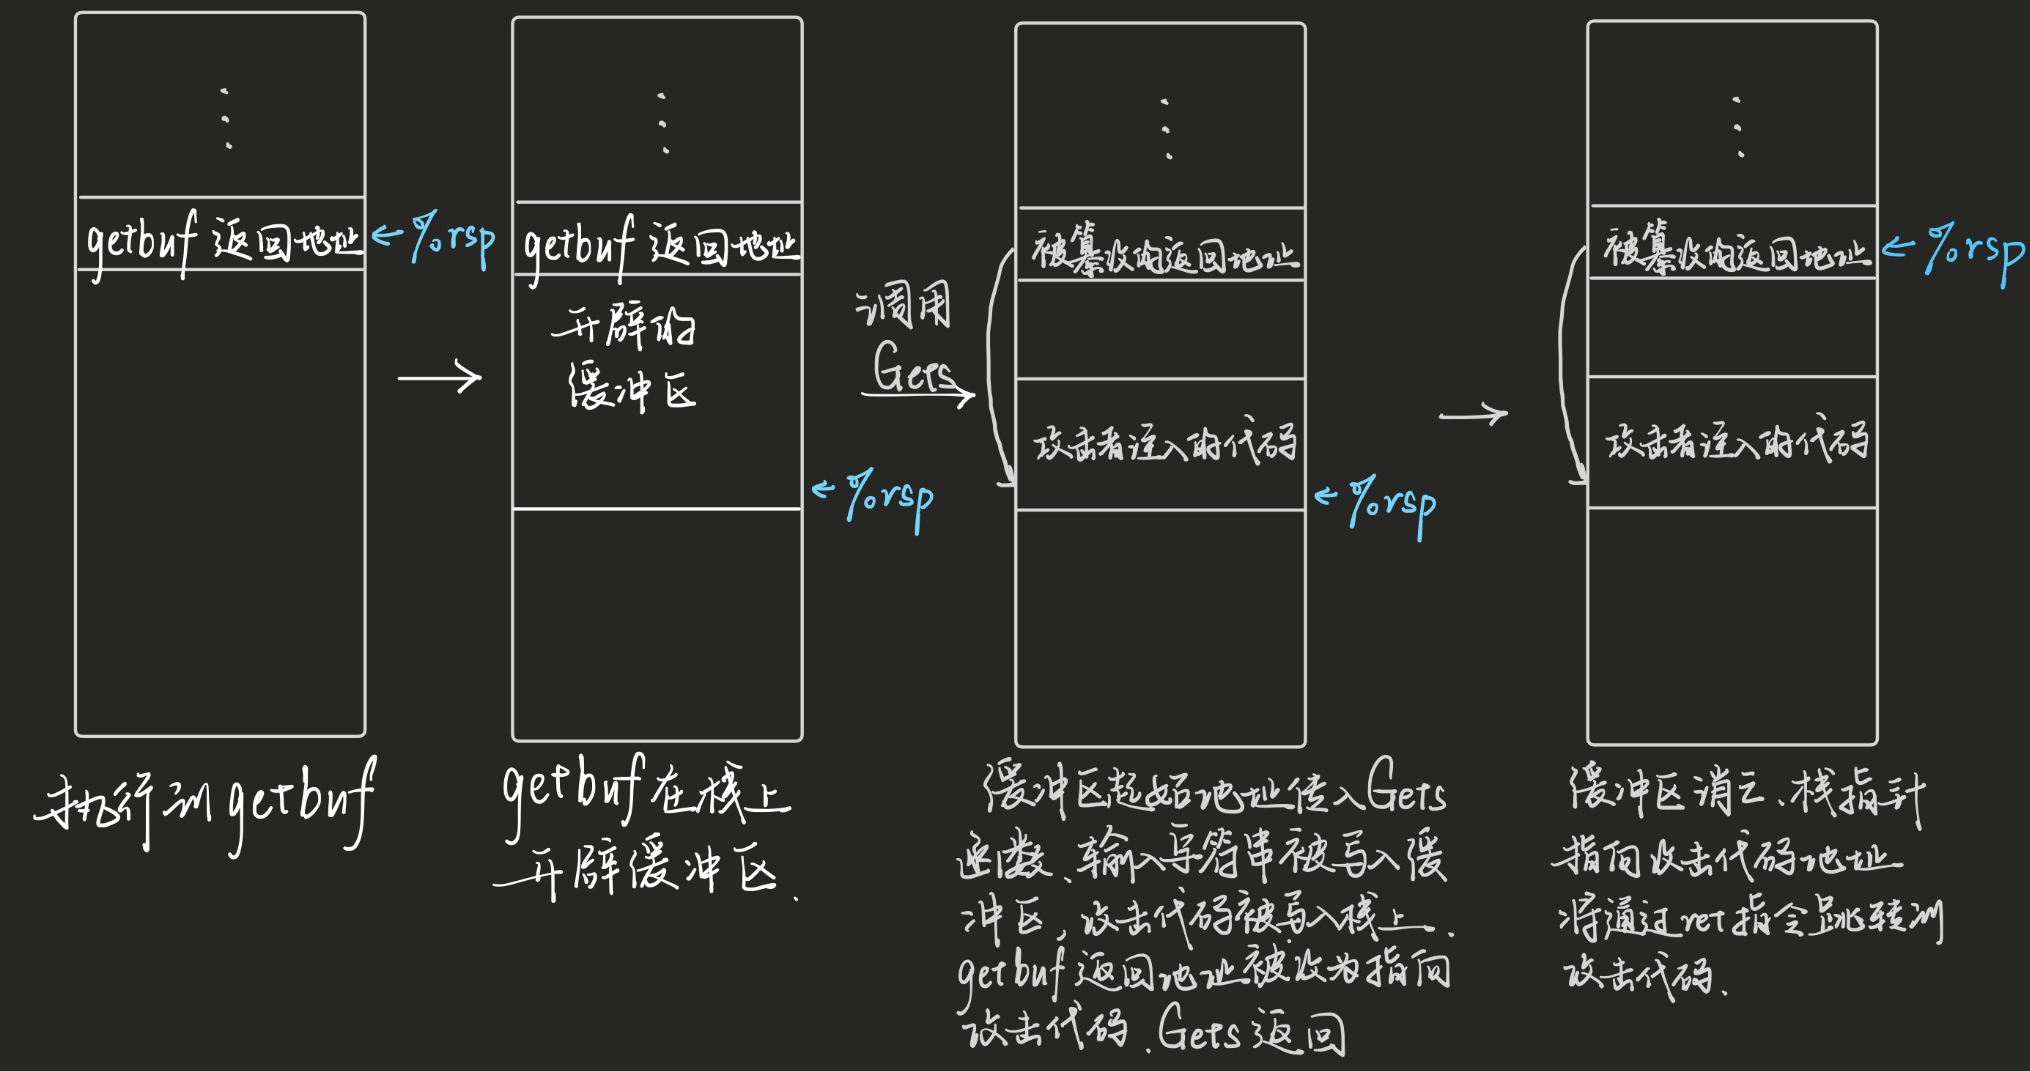 getbuf 返回地址
←%rsp
执行到getbuf
getbuf 返回地址
开辟的
缓冲区
←%rsp
getbuf在栈上
开辟缓冲区.
调用
Gets
被篡改的返回地址
攻击者注入的代码
←%rsp
缓冲区起始地址传入Gets
函数、输入字符串被写入缓
冲区,攻击代码被写入栈上.
getbuf返回地址被改为指向
攻击代码.Gets返回
被篡改的返回地址
←%rsp
攻击者注入的代码
缓冲区消亡、栈指针
指向攻击代码地址
将通过ret指令跳转到
攻击代码.